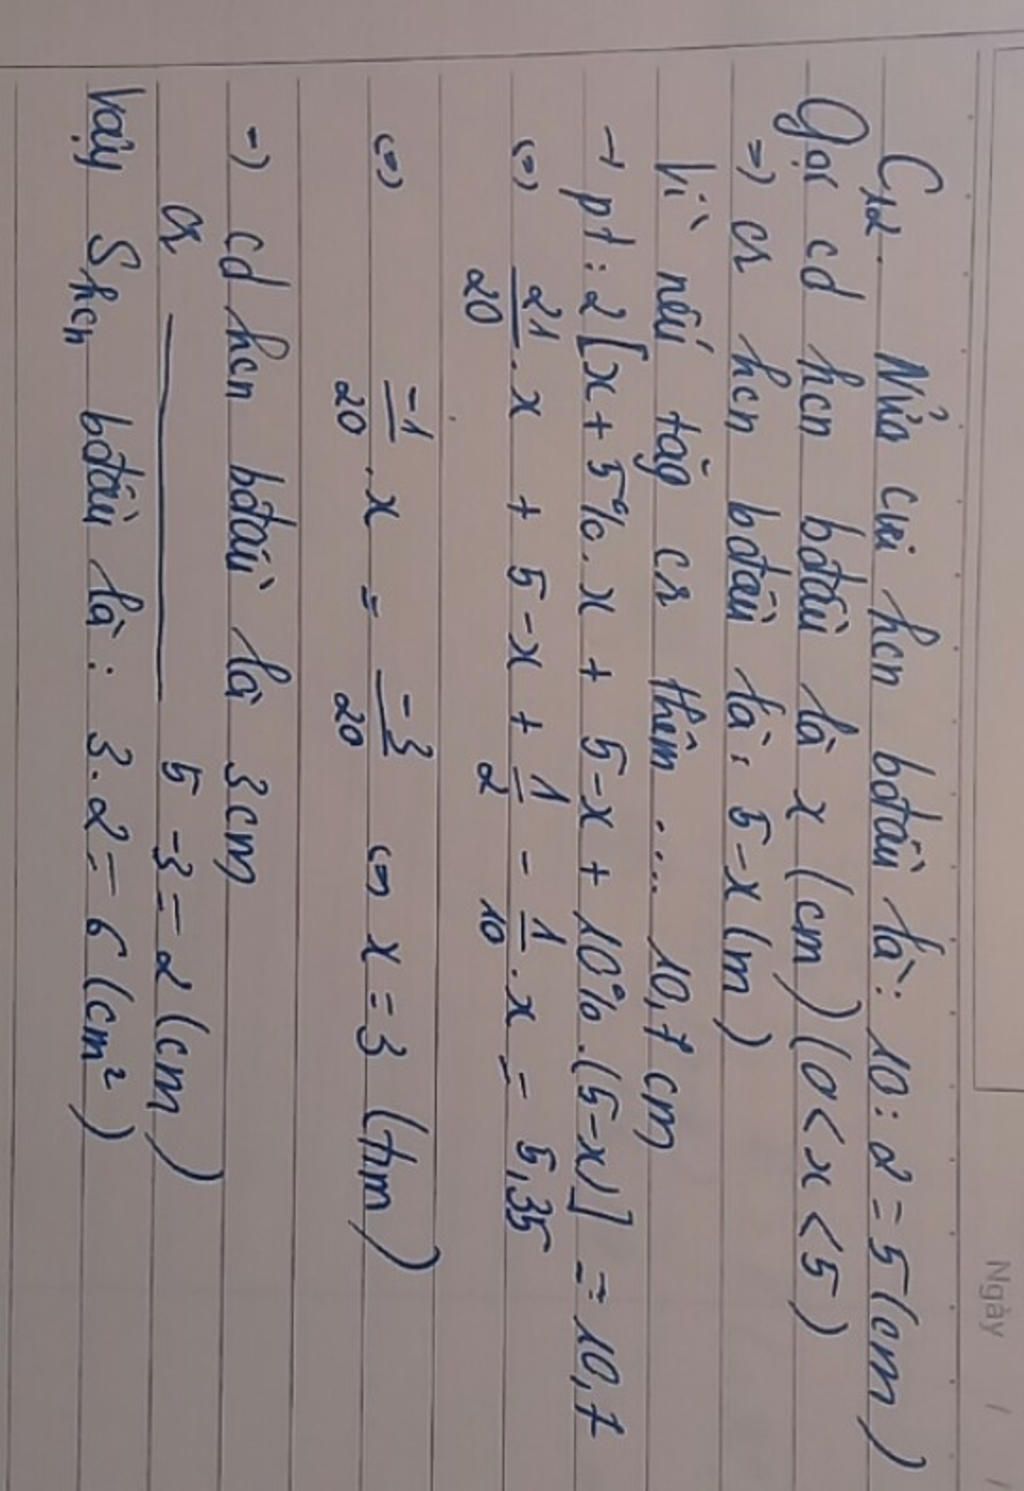 Ngày / /
C12. Nửa cvi hcn bđầu là: 10:2=5(cm)
Gọi cd hcn bđầu là x (cm) (0<x<5)
=> cr hcn bđầu là: 5-x(m)
Vì nếu tăg cr thêm .... 10,7cm
→ pt: 2[x+5%.x+5-x+10%.(5-x)] = 10,7
<=> 21/20.x + 5-x + 1/2 - 1/10.x = 5,35
<=> -1/20.x = -3/20 <=> x=3 (tm)
=> cd hcn bđầu là 3cm
cr ——— 5-3=2(cm)
Vậy Shcn bđầu là: 3.2=6(cm²)